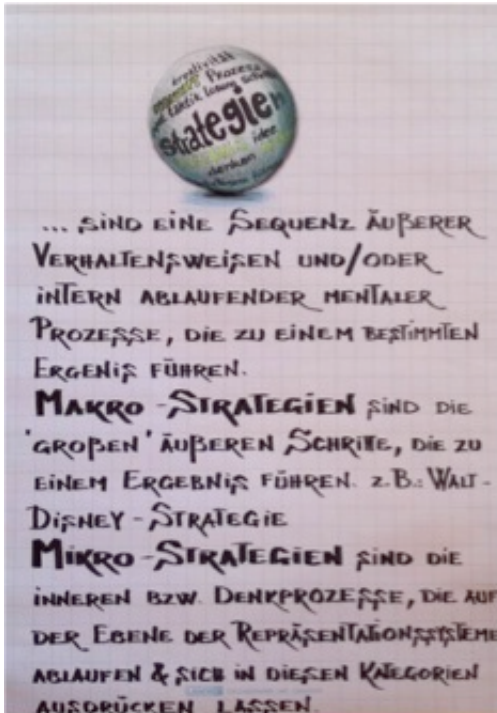 kreativität
Prozess
taktik lösung
strategien
idee
denken
... SIND EINE SEQUENZ ÄUßERER
VERHALTENSWEISEN UND/ODER
INTERN ABLAUFENDER MENTALER
PROZESSE, DIE ZU EINEM BESTIMMTEN
ERGENIS FÜHREN.
MAKRO-STRATEGIEN SIND DIE
'GROßEN' ÄUßEREN SCHRITTE, DIE ZU
EINEM ERGEBNIS FÜHREN. Z.B.: WALT-
DISNEY-STRATEGIE
MIKRO-STRATEGIEN SIND DIE
INNEREN BZW. DENKPROZESSE, DIE AUF
DER EBENE DER REPRÄSENTATIONSSYSTEME
ABLAUFEN & SICH IN DIESEN KATEGORIEN
AUSDRÜCKEN LASSEN.